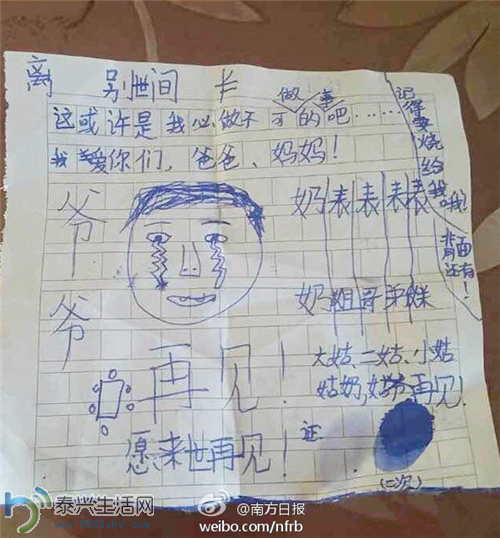 离别世间卡
做事
这或许是我必做不可的吧……
我爱你们，爸爸、妈妈！
记得要烧给我哦！
背面还有！
爷爷
奶奶
表姐
表哥
表弟
表妹
大姑、二姑、小姑
姑奶,姑爷再见.
再见！
愿来世再见！
证:
(二次)
泰兴生活网
@南方日报
weibo.com/nfrb